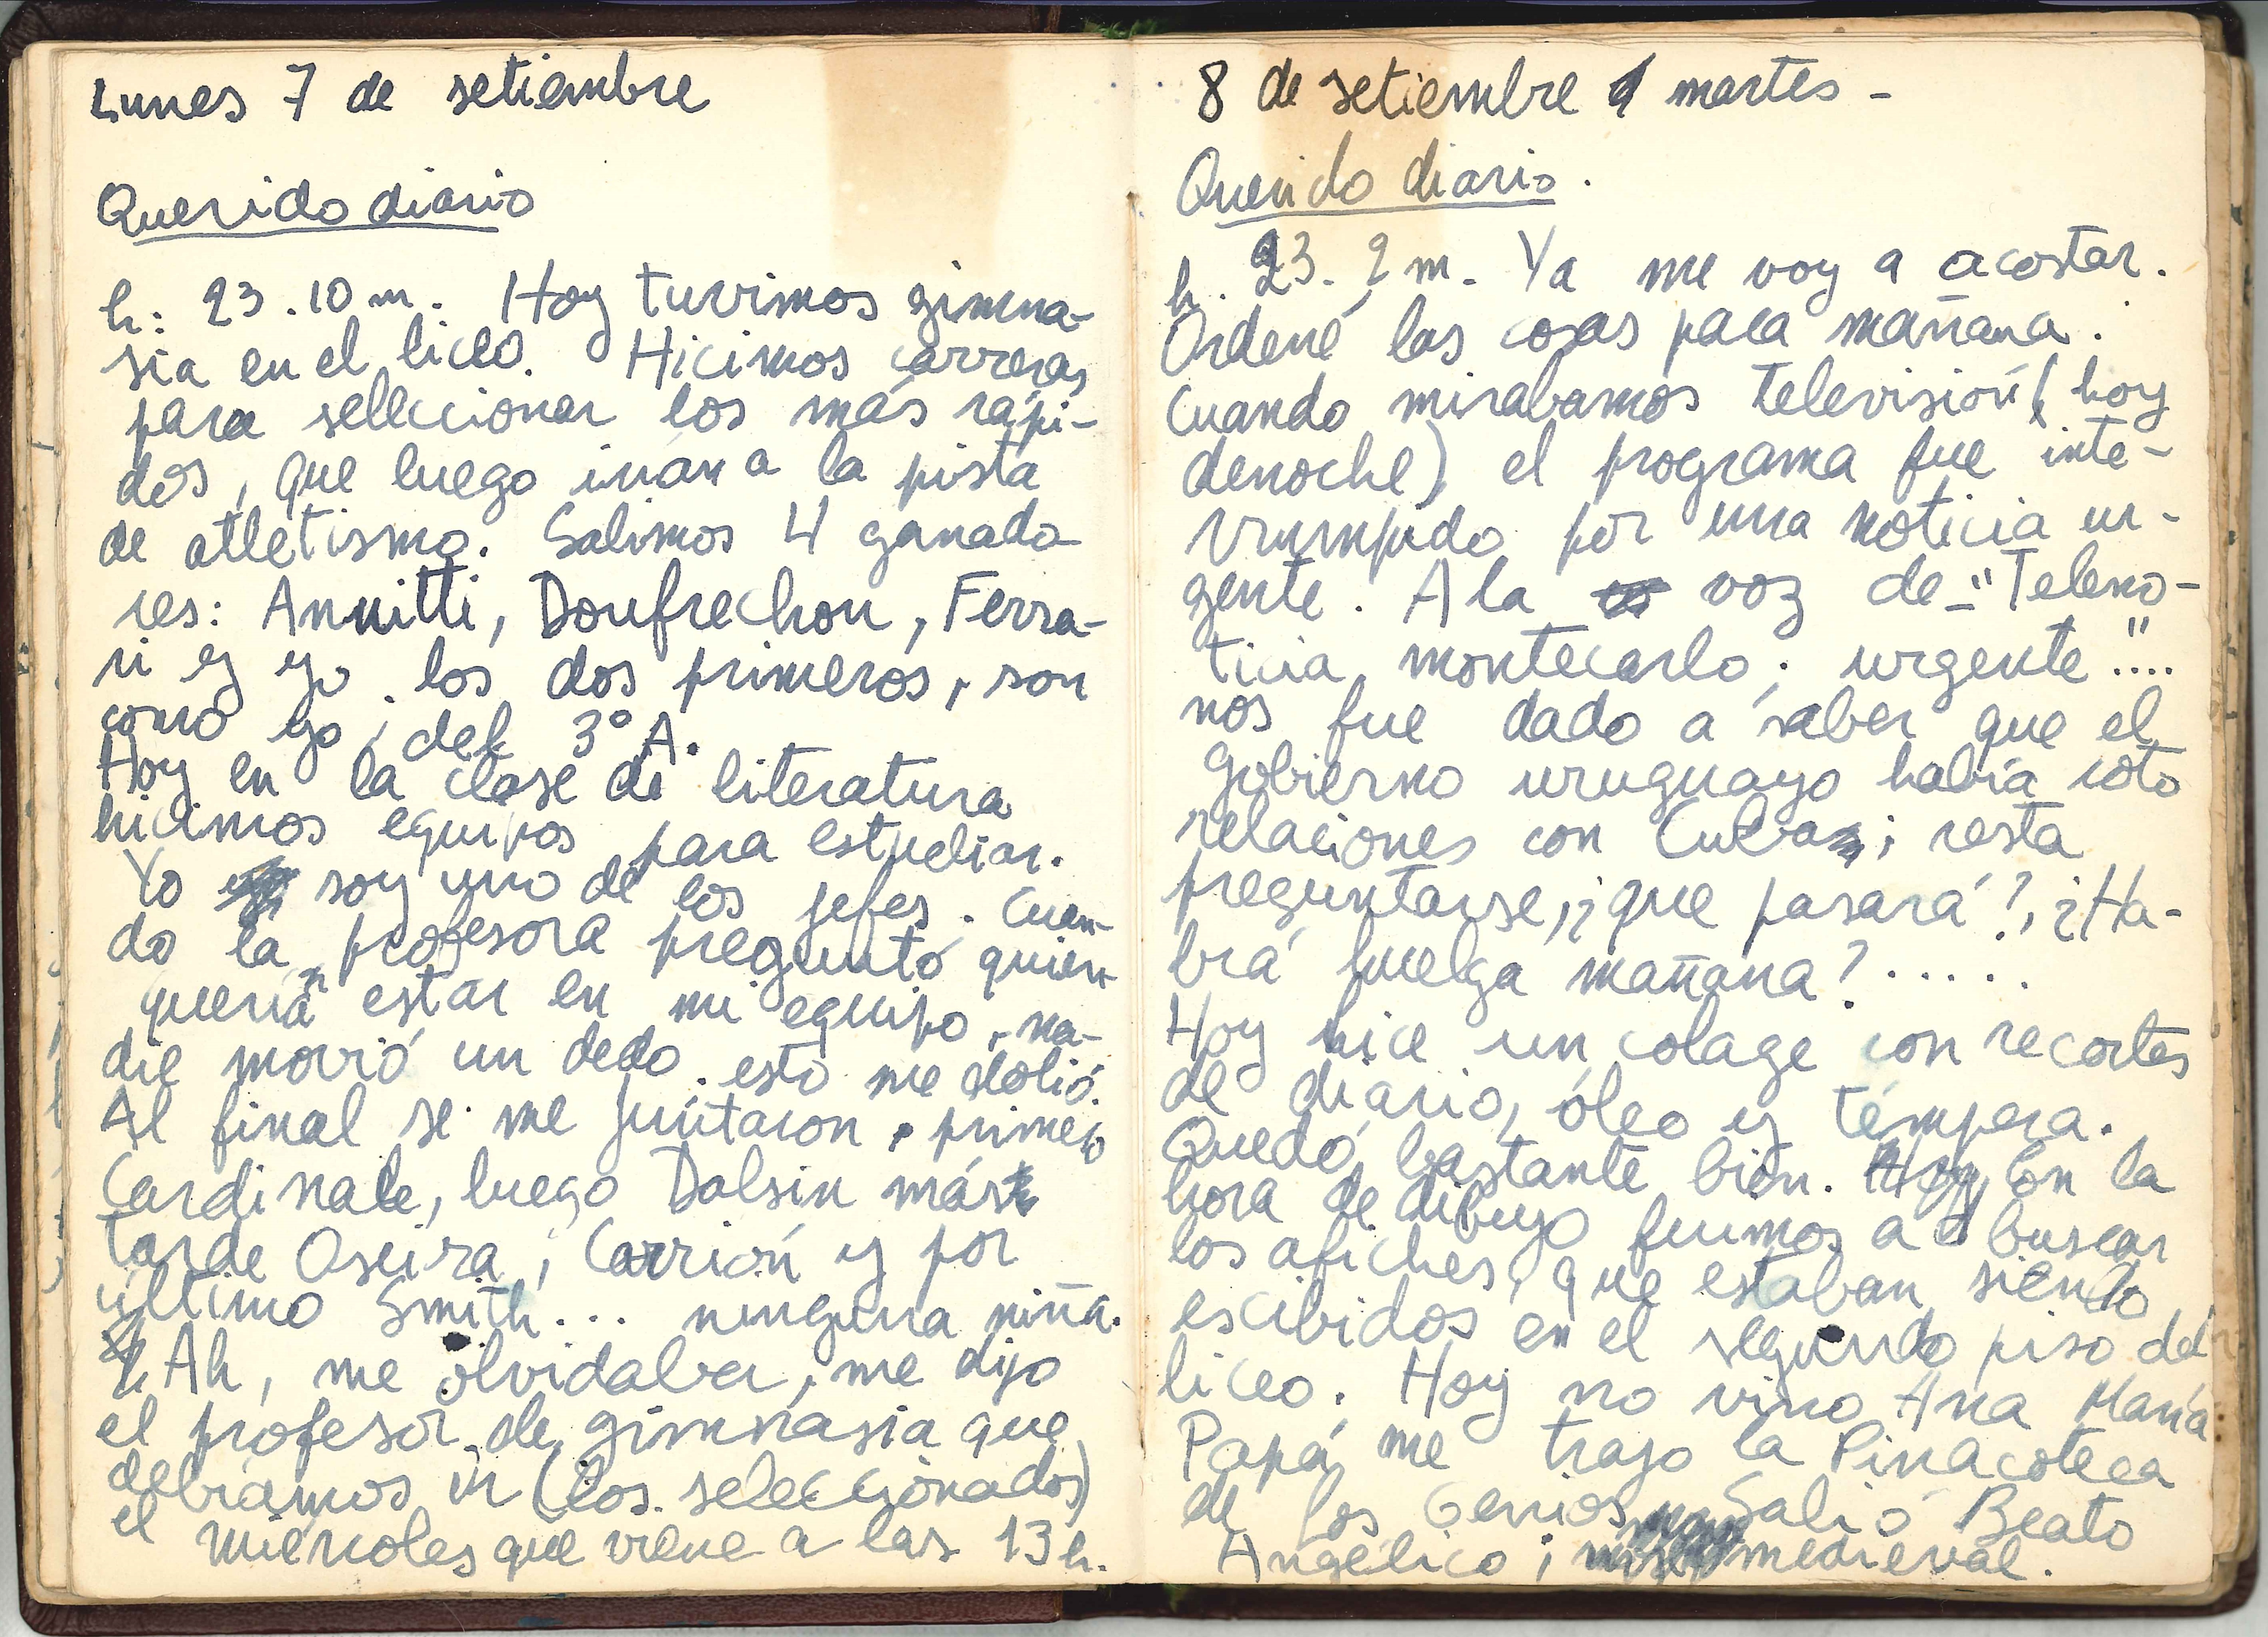 Lunes 7 de setiembre
Querido diario
h: 23.10 m. Hoy tuvimos gimna-
sia en el liceo. Hicimos carreras
para seleccionar los más rápi-
dos, que luego irán a la pista
de atletismo. Salimos 4 ganado
res: Annitti, Doufrechou, Ferra-
ri y yo. los dos primeros, son
como yo, del 3º A.
Hoy en la clase de literatura
hicimos equipos para estudiar.
Yo soy uno de los jefes. Cuan-
do la profesora preguntó quien
quería estar en mi equipo, na-
die movió un dedo. esto me dolió.
Al final se me juntaron, primero
Cardinale, luego Dalsin más
tarde Oseira, Carrión y por
último Smith... ninguna niña.
Ah, me olvidaba, me dijo
el profesor de gimnasia que
debíamos ir (los seleccionados)
el miércoles que viene a las 13 h.
8 de setiembre martes -
Querido diario.
h. 23. 2 m. Ya me voy a acostar.
Ordené las cosas para mañana.
Cuando mirabamos televisión (hoy
denoche) el programa fue inte-
rrumpido por una noticia ur-
gente. A la voz de "Teleno-
ticia montecarlo; urgente"....
nos fue dado a saber que el
gobierno uruguayo había roto
relaciones con Cuba; resta
preguntarse, ¿que pasará?, ¿Ha-
brá huelga mañana?.....
Hoy hice un colage con recortes
de diario, óleo y témpera.
Quedó bastante bien. En la
hora de dibujo fuimos a buscar
los afiches, que estaban siendo
escibidos en el segundo piso del
liceo. Hoy no vino Ana María
Papá me trajo la Pinacoteca
de los Genios Salió Beato
Angélico; medieval.